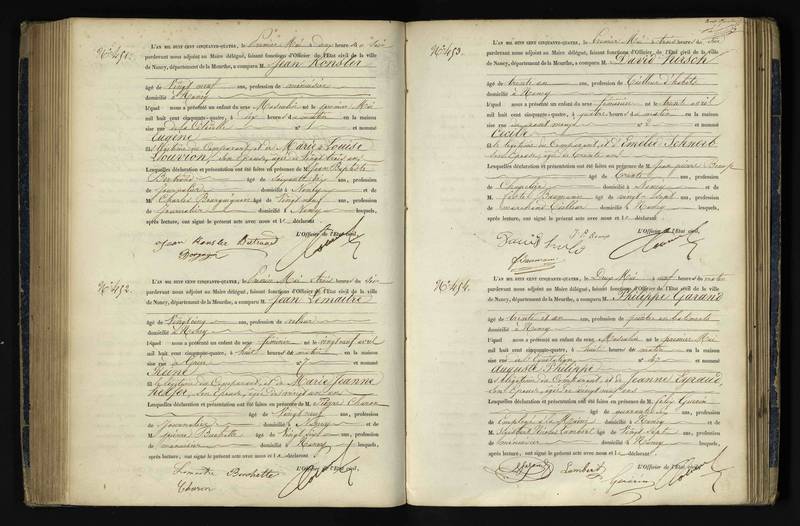 N° 451.
L'AN MIL HUIT CENT CINQUANTE-QUATRE, le Premier Mai à deux heures du Soir
pardevant nous adjoint au Maire délégué, faisant fonctions d'Officier de l'Etat civil de la ville
de Nancy, département de la Meurthe, a comparu M. Jean Konsler
âgé de Vingt neuf ans, profession de menuisier
domicilié à Nancy
lequel nous a présenté un enfant du sexe Masculin né le premier Mai
mil huit cent cinquante-quatre, à six heures du matin en la maison
sise rue de la N° 1 et nommé
Eugène
fils légitime du Comparant, et de Marie Louise
Louvion, son épouse, âgée de Vingt trois ans
Lesquelles déclaration et présentation ont été faites en présence de M. Jean Baptiste
Bertrand âgé de Soixante six ans, profession
de journalier domicilié à Nancy et de
M. Charles Bourgogne âgé de Vingt neuf ans, profession
de journalier domicilié à Nancy lesquels,
après lecture, ont signé le présent acte avec nous et le déclarant.
L'Officier de l'Etat civil,
Jean Konsler Bertrand
N° 452.
L'AN MIL HUIT CENT CINQUANTE-QUATRE, le Premier Mai à trois heures du Soir
pardevant nous adjoint au Maire délégué, faisant fonctions d'Officier de l'Etat civil de la ville
de Nancy, département de la Meurthe, a comparu M. Jean Lemaitre
âgé de Vingt cinq ans, profession de
domicilié à Nancy
lequel nous a présenté un enfant du sexe féminin né le vingt neuf avril
mil huit cent cinquante-quatre, à huit heures du matin en la maison
sise rue N° 7 et nommé
Reine
fille légitime du Comparant, et de Marie Jeanne
son épouse, âgée de vingt un ans
Lesquelles déclaration et présentation ont été faites en présence de M. Pierre Charon
âgé de Vingt neuf ans, profession
de journalier domicilié à Nancy et de
M. Bouchotte âgé de Vingt sept ans, profession
de menuisier domicilié à Nancy lesquels,
après lecture, ont signé le présent acte avec nous et le déclarant.
L'Officier de l'Etat civil,
Lemaitre Bouchotte
Charon
N° 453.
L'AN MIL HUIT CENT CINQUANTE-QUATRE, le premier Mai à trois heures du Soir
pardevant nous adjoint au Maire délégué, faisant fonctions d'Officier de l'Etat civil de la ville
de Nancy, département de la Meurthe, a comparu M. David Hirsch
âgé de trente un ans, profession de Tailleur d'habits
domicilié à Nancy
lequel nous a présenté un enfant du sexe féminin né le trente avril
mil huit cent cinquante-quatre, à quatre heures du matin en la maison
sise rue N° 2 et nommé
Cécile
fille légitime du Comparant, et d'Emélie Schneeb
son épouse, âgée de trente ans
Lesquelles déclaration et présentation ont été faites en présence de M. Jean pierre
âgé de trente ans, profession
de Chapelier domicilié à Nancy et de
M. Baumann âgé de vingt sept ans, profession
de marchand Tailleur domicilié à Nancy lesquels,
après lecture, ont signé le présent acte avec nous et le déclarant.
L'Officier de l'Etat civil,
David Hirsch
Baumann
N° 454.
L'AN MIL HUIT CENT CINQUANTE-QUATRE, le Deux Mai à neuf heures du matin
pardevant nous adjoint au Maire délégué, faisant fonctions d'Officier de l'Etat civil de la ville
de Nancy, département de la Meurthe, a comparu M. Philippe Gérard
âgé de trente et un ans, profession de
domicilié à Nancy
lequel nous a présenté un enfant du sexe Masculin né le premier Mai
mil huit cent cinquante-quatre, à huit heures du matin en la maison
sise rue N° et nommé
Auguste Philippe
fils légitime du Comparant, et de Jeanne Eyraud,
son épouse, âgée de vingt ans
Lesquelles déclaration et présentation ont été faites en présence de M. Guérin
âgé de quarante ans, profession
de Employé à la Mairie domicilié à Nancy et de
M. Nicolas Lambert âgé de Vingt sept ans, profession
de menuisier domicilié à Nancy lesquels,
après lecture, ont signé le présent acte avec nous et le déclarant.
L'Officier de l'Etat civil,
Lambert
Guérin